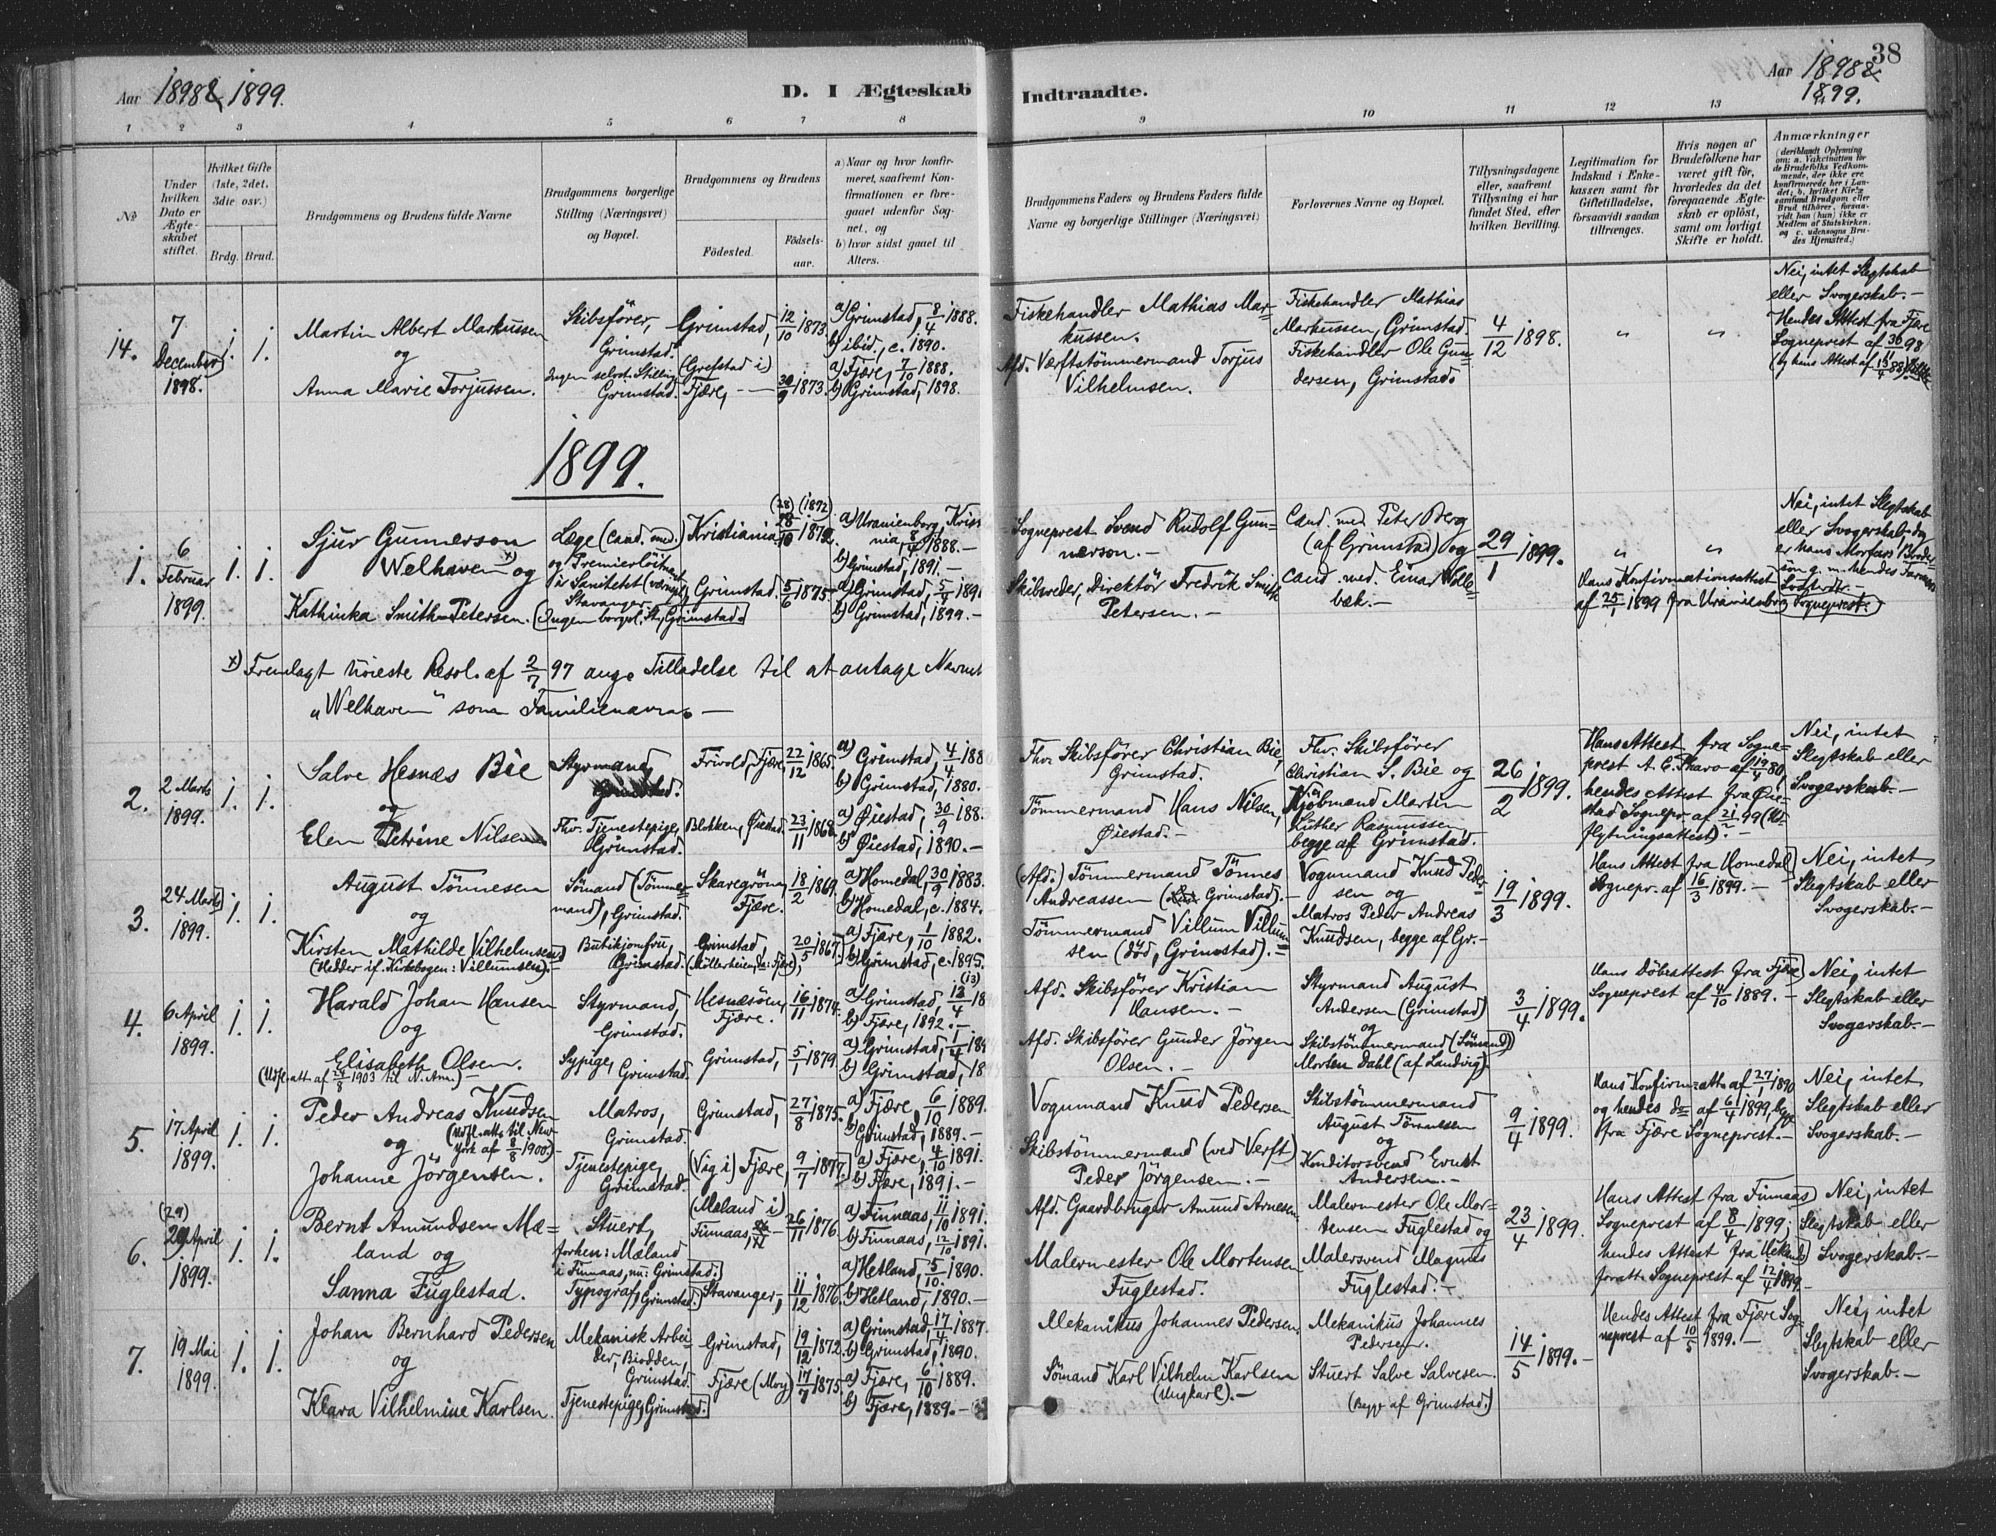 Aar 1898 & 1899.
D. I Ægteskab Indtraadte.
Aar 1898 & 1899.
38
1 2 3 4 5 6 7 8 9 10 11 12 13
No
Under hvilken Dato er Ægteskabet stiftet.
Hvilket Gifte (1ste, 2det, 3die osv.)
Brdg. Brud.
Brudgommens og Brudens fulde Navne
Brudgommens borgerlige Stilling (Næringsvei) og Bopæl.
Brudgommens og Brudens
Födested.
Födsels-aar.
a) Naar og hvor konfirmeret, saafremt Konfirmationen er foregaaet udenfor Sognet, og
b) hvor sidst gaaet til Alters.
Brudgommens Faders og Brudens Faders fulde Navne og borgerlige Stillinger (Næringsvei)
Forlovernes Navne og Bopæl.
Tillysningsdagene eller, saafremt Tillysning ei har fundet Sted, efter hvilken Bevilling.
Legitimation for Indskud i Enkekassen samt for Giftetilladelse, forsaavidt saadan tiltrænges.
Hvis nogen af Brudefolkene har været gift för, hvorledes da det foregaaende Ægteskab er oplöst, samt om lovligt Skifte er holdt.
Anmærkninger
(deriblandt Oplysning om: a. Vakcination for de Brudefolks Vedkommende, der ikke ere konfirmerede her i Landet; b. hvilket Kirkesamfund Brudgom eller Brud tilhörer, forsaavidt han (hun) ikke er Medlem af Statskirken, og c. udensogns Brudes Hjemsted.)
14. 7 December 1898. 1. 1.
Martin Albert Markussen
og
Anna Marie Torjussen.
Skibsförer, Grimstad.
Ingen selvst. Stilling Grimstad.
Grimstad, 12/10 1873.
(Grefstad i) Fjære, — 30/9 1873.
a) Grimstad, 8/4 1888.
b) ibid., c. 1890.
a) Fjære, 7/10 1888.
b) Grimstad, 1898.
Fiskehandler Mathias Markussen.
Afd. Værftstömmermand Torjus Vilhelmsen.
Fiskehandler Mathias Markussen, Grimstad
Fiskehandler Ole Gundersen, Grimstad.
4/12 1898.
" "
Nei, intet Slegtskab eller Svogerskab.—
Hendes Attest fra Fjære Sogneprest af 98
1899.
1. 6 Februar 1899. 1. 1.
Sjur Gunnerson Welhaven x) og
Kathinka Smith-Petersen.
Læge (Cand. med.) og Premierlöitnant i Sanitetet (værnepl.) Stavanger
(Ingen borgerl. St., Grimstad.)
Kristiania (28) (1872) 28/10 1872.
Grimstad. 5/6 1875
a) Uranienborg, Kristiania, 8/4 1888.—
b) Grimstad, 1891.—
a) Grimstad, 5/4 1891
b) Grimstad, 1899.—
Sogneprest Svend Rudolf Gunnerson.—
Skibsreder, Direktör Fredrik Smith Petersen.—
Cand. med. Peter Berg (af Grimstad) og
cand. med. Einar Hollebæk.—
29/1 1899.
" "
Hans Konfirmationsattest af 25/1 1899 fra Uranienborg Sogneprest.
Nei, intet Slegtskab eller Svogerskab,
x) Fremlagt höieste Resol. af 2/7 97 ang. Tilladelse til at antage Navnet
"Welhaven" som Familienavn.—
2. 2 Marts 1899. 1. 1.
Salve Hesnæs Bie
og
Elen Petrine Nilsen
Styrmand, Grimstad.
Fhv. Tjenestepige, Grimstad.
Frivold, Fjære 22/12 1865.
Blokken, Øiestad 23/11 1868.
a) Grimstad, 4/4 188
b) Grimstad, 1880.
a) Øiestad, 30/9 188.
b) Øiestad, 1890.—
Fhv. Skibsförer Christian Bie, Grimstad.
Tömmermand Hans Nilsen, Øiestad.—
Fhv. Skibsförer Christian S. Bie og
Kjöbmand Martin Luther Rasmussen, begge af Grimstad.
26/2 1899.
Hans Attest fra Sogneprest A. C. Tharo af 80, hendes Attest fra Øiestad Sognepr. af 21/2 99 (Udflytningsattest).—
Nei, intet Slegtskab eller Svogerskab.—
3. 24 Marts 1899. 1. 1.
August Tönnesen
og
Kirsten Mathilde Vilhelmsen
(Hedder if. Kirkebogen: Villumsen).—
Sömand (Tömmermand), Grimstad.
Butikjomfru, Grimstad.
Skaregröm Fjære. 18/2 1869.
Grimstad, (Möllerheien, Fjære), 20/5 1867.
a) Homedal 30/9 1883.
b) Homedal, c. 1884.
a) Fjære, 1/10 1882.
b) Grimstad, c. 1895.
(Afd.) Tömmermand Tönnes Andreassen ( Grimstad).—
Tömmermand Villum Villumsen (död, Grimstad).—
Vognmand Knud Pedersen og
Matros Peder Andreas Knudsen, begge af Gr.—
19/3 1899.
Hans Attest fra Homedal Sognepr. af 16/3 1899.—
Nei, intet Slegtskab eller Svogerskab.—
4. 6 April 1899. 1. 1.
Harald Johan Hansen
og
Elisabeth Olsen.
(Udfl. att. af 24/8 1903 til N. Am.)—
Styrmand, Grimstad.
Sypige, Grimstad.
Hesnæsöen, Fjære. 16/11 1874.
Grimstad, 5/1 1879.
a) Grimstad, (13) 13/4 18
b) Fjære, 1892.—
a) Grimstad, 1/4 18
b) Grimstad, 18
Afd. Skibsförer Kristian Hansen.—
Afd. Skibsförer Gunder Jörgen Olsen.—
Styrmand August Andersen (Grimstad)
og
Skibstömmermand (Sömand) Morten Dahl (af Landvig).
3/4 1899.
Hans Döbsattest fra Fjære Sogneprest af 4/10 1889.—
Nei, intet Slegtskab eller Svogerskab.—
5. 17 April 1899. 1. 1.
Peder Andreas Knudsen
og (Udfl. att. til New York af 8/8 1900)—
Johanne Jörgensen.
Matros, Grimstad.
Tjenestepige, Grimstad.
Grimstad, 27/8 1875.
(Vig i) Fjære, 9/7 1877.
a) Fjære, 6/10 1889.
b) Grimstad, 1889.—
a) Fjære, 4/10 1891.
b) Fjære, 1891.—
Vognmand Knud Pedersen
Skibstömmermand (ved Verft) Peder Jörgensen.—
Skibstömmermand August Tönnesen
og
Konditorsvend Ernst Andersen.—
9/4 1899.
Hans Konfirm.-att. af 27/1 1890 og hendes do af 6/4 1899, begge fra Fjære Sogneprest.—
Nei, intet Slegtskab eller Svogerskab.—
6. (29) 29 April 1899. 1. 1.
Bernt Amundsen Mæland og
Sanna Fuglestad.
Stuert, forhen: Mæland i Finnaas, nu: Grimstad.
Typograf, Grimstad.
(Mæland i) Finnaas, 26/11 1876.
Stavanger, 11/12 1876.
a) Finnaas, 11/10 1891.
b) Finnaas, 12/10 1891.
a) Hetland, 5/10 1890.
b) Hetland, 1890.—
Afd. Gaardbruger Amund Arnesen
Malermester Ole Mortensen Fuglestad.
Malermester Ole Mortensen Fuglestad og
Malersvend Magnus Fuglestad.—
23/4 1899.
Hans Attest fra Finnaas Sogneprest af 8/4 1899; hendes Attest fra Hetlands Sogneprest af 12/4 1899.
Nei, intet Slegtskab eller Svogerskab.—
7. 19 Mai 1899. 1. 1.
Johan Bernhard Pedersen
og
Klara Vilhelmine Karlsen.
Mekanisk Arbeider, Biodden, Grimstad.
Tjenestepige, Grimstad.
Grimstad, 19/12 1872.
Fjære (Moy) 17/7 1875.
a) Grimstad, 17/4 1887.
b) Grimstad, 1890.
a) Fjære, 6/10 1889.
b) Fjære, 1889.—
Mekanikus Johannes Pedersen.
Sömand Karl Vilhelm Karlsen (Ungkarl).—
Mekanikus Johannes Pedersen.
Stuert Salve Salvesen.
(Begge af Grimstad.)
14/5 1899.—
Hendes Attest fra Fjære Sogneprest af 10/5 1899.—
Nei, intet Slegtskab eller Svogerskab.—